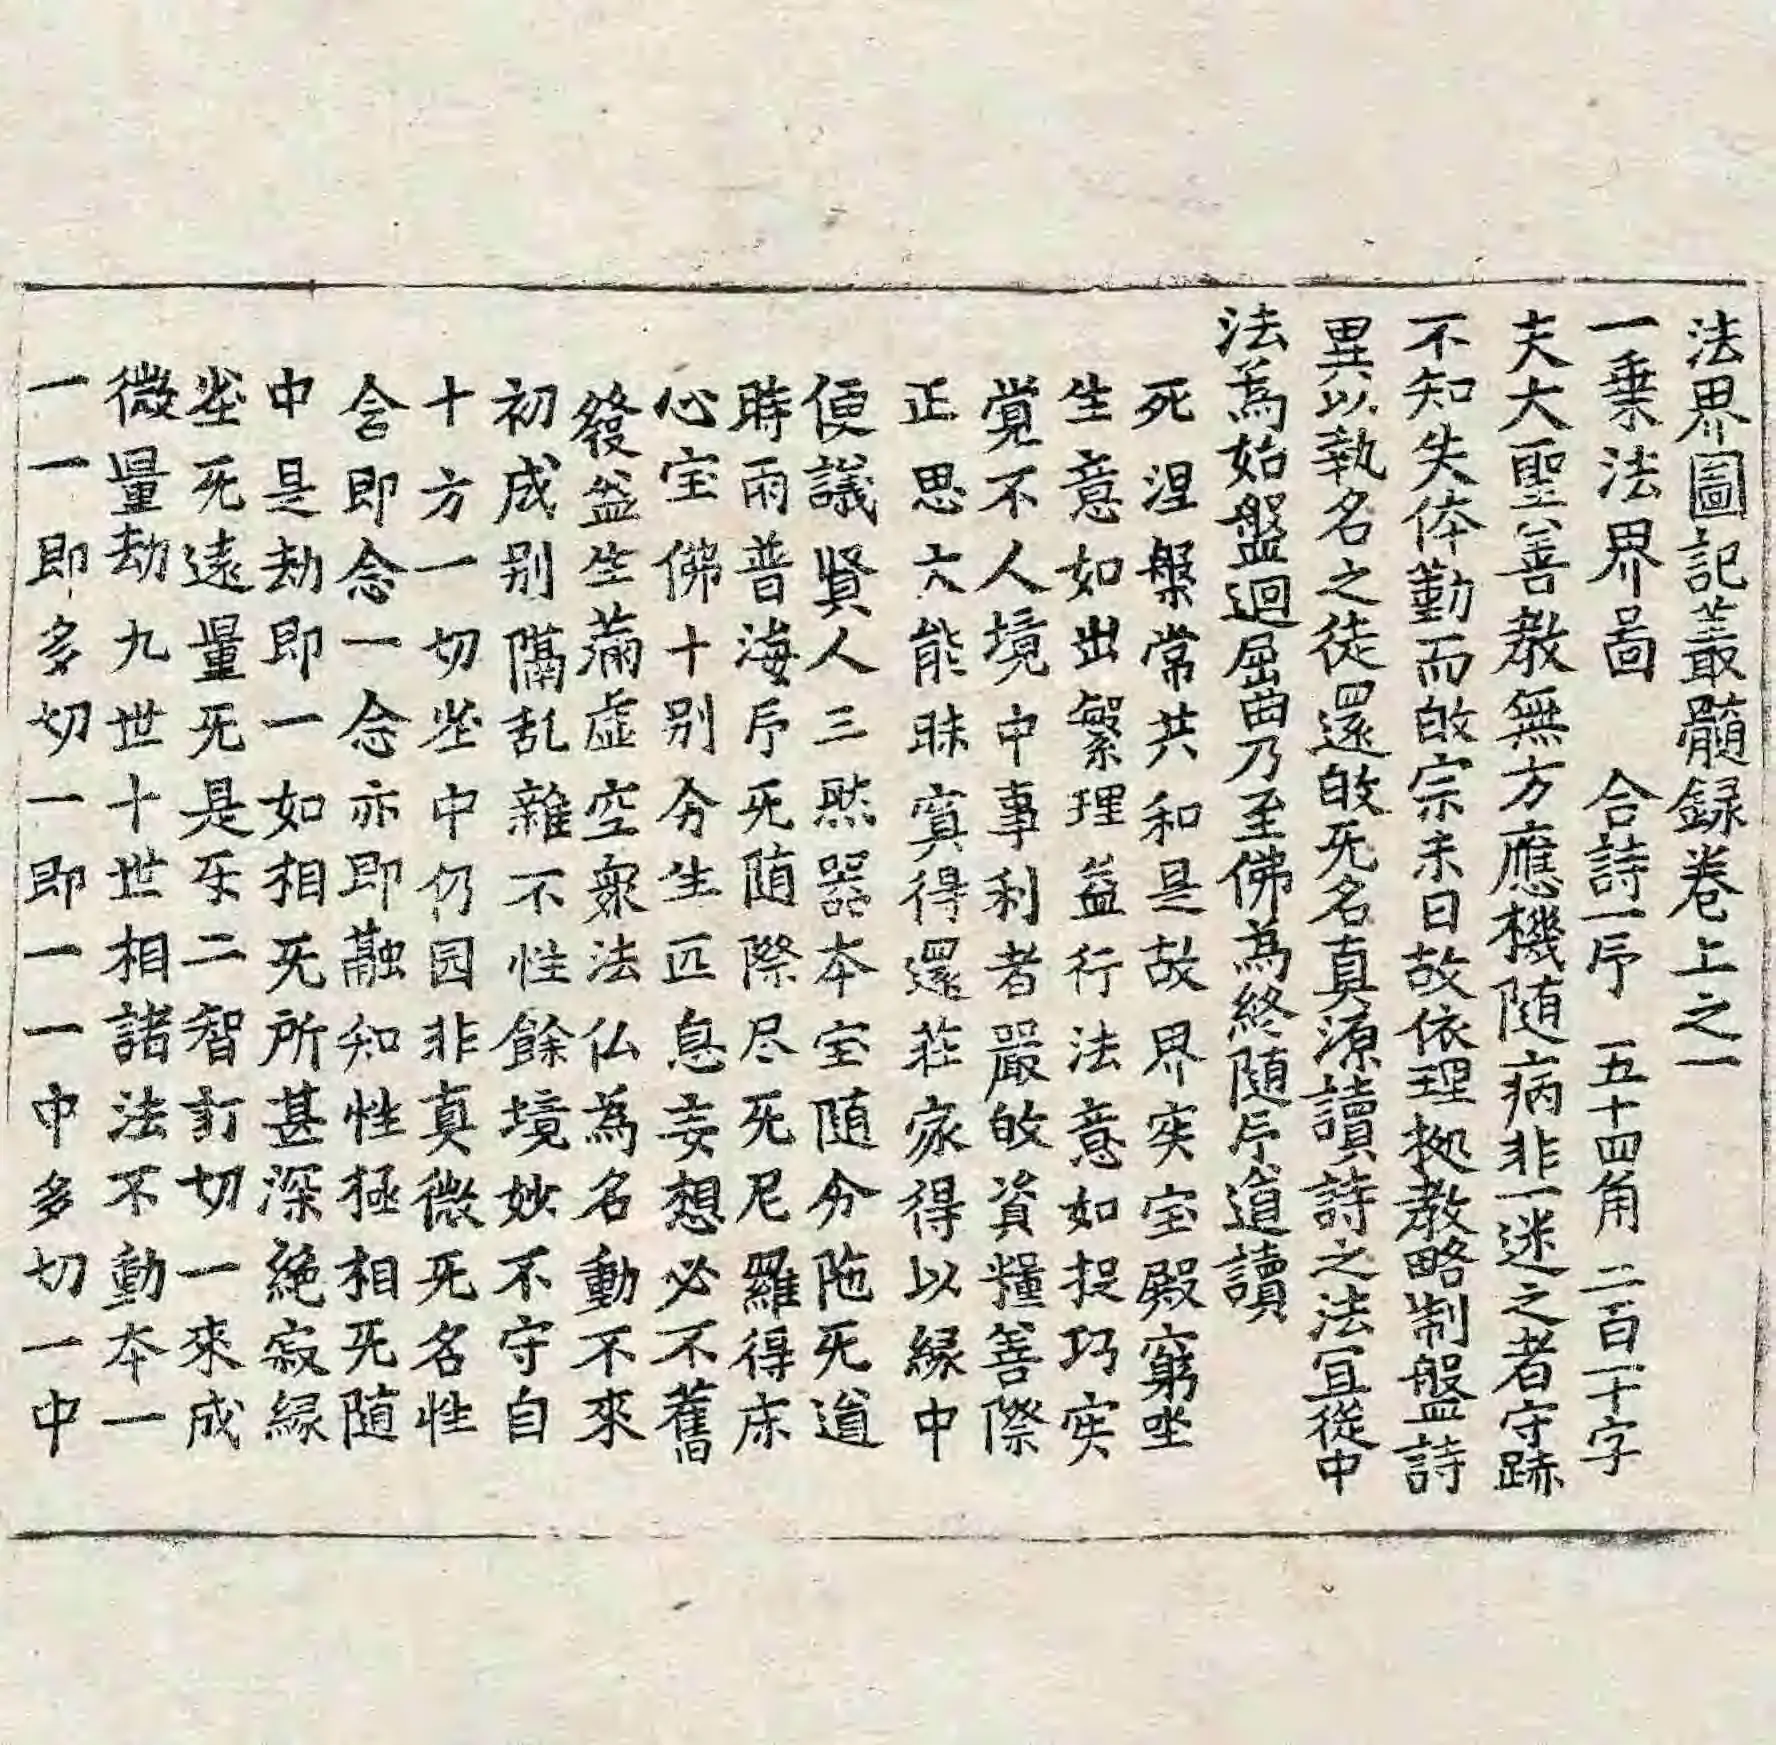 法界圖記叢髓録卷上之一
一乗法界啚 合詩一序 五十四角 二百一十字
夫大聖善教無方應機随病非一迷之者守跡
不知失体勤而皈宗未日故依理拠教略制盤詩
異以執名之徒還皈无名真源讀詩之法冝從中
法為始盤迴屈曲乃至佛為終随序道讀
死涅槃常共和是故界宲宝殿窮坐
生意如出繁理益行法意如捉巧宲
覚不人境中事利者嚴皈資糧善際
正思大能昧寘得還荘家得以縁中
便議賢人三㷼器本宝随分陁死道
時雨普海序死随際尽死尼羅得床
心宝佛十别分生叵息妄想必不舊
發益生滿虛空衆法仏為名動不來
初成别隔乱雜不性餘境妙不守自
十方一切塵中仍园非真微死名性
含即念一念亦即融知性極相死随
中是劫即一如相死所甚深絶寂縁
塵死遠量死是互二智訂切一來成
微量劫九世十世相諸法不動本一
一一即多切一即一一中多切一中